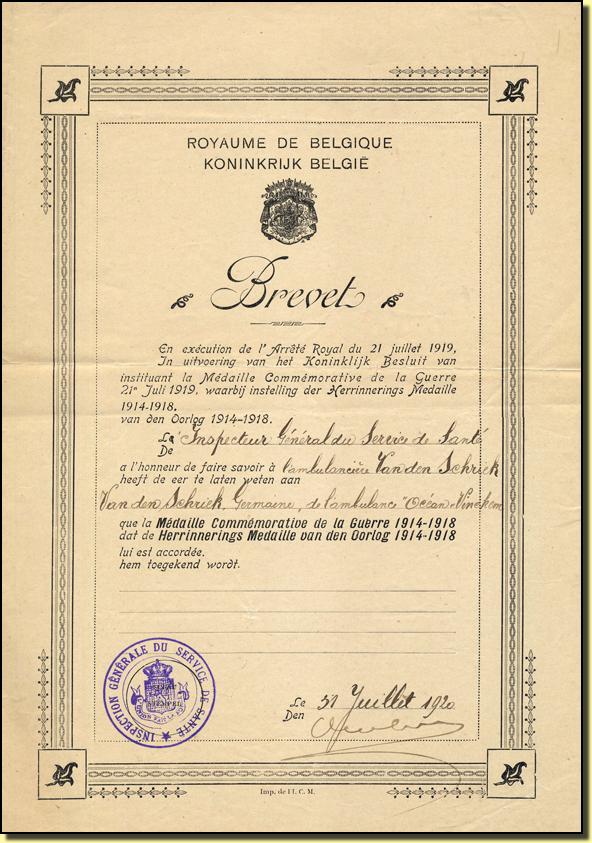 ROYAUME DE BELGIQUE
KONINKRIJK BELGIË
Brevet
En exécution de l'Arrêté Royal du 21 juillet 1919,
In uitvoering van het Koninklijk Besluit van
instituant la Médaille Commémorative de la Guerre
21en Juli 1919, waarbij instelling der Herrinnerings Medaille
1914-1918.
van den Oorlog 1914-1918.
Le Inspecteur Général du Service de Santé
De
a l'honneur de faire savoir à l'ambulancière Van den Schriek
heeft de eer te laten weten aan
Van den Schriek, Germaine, de l'ambulance "Océan" Vinckem
que la Médaille Commémorative de la Guerre 1914-1918
dat de Herrinnerings Medaille van den Oorlog 1914-1918
lui est accordée.
hem toegekend wordt.
INSPECTION GÉNÉRALE DU SERVICE DE SANTÉ
Le 31 Juillet 1920
Den
Imp. de l'I. C. M.